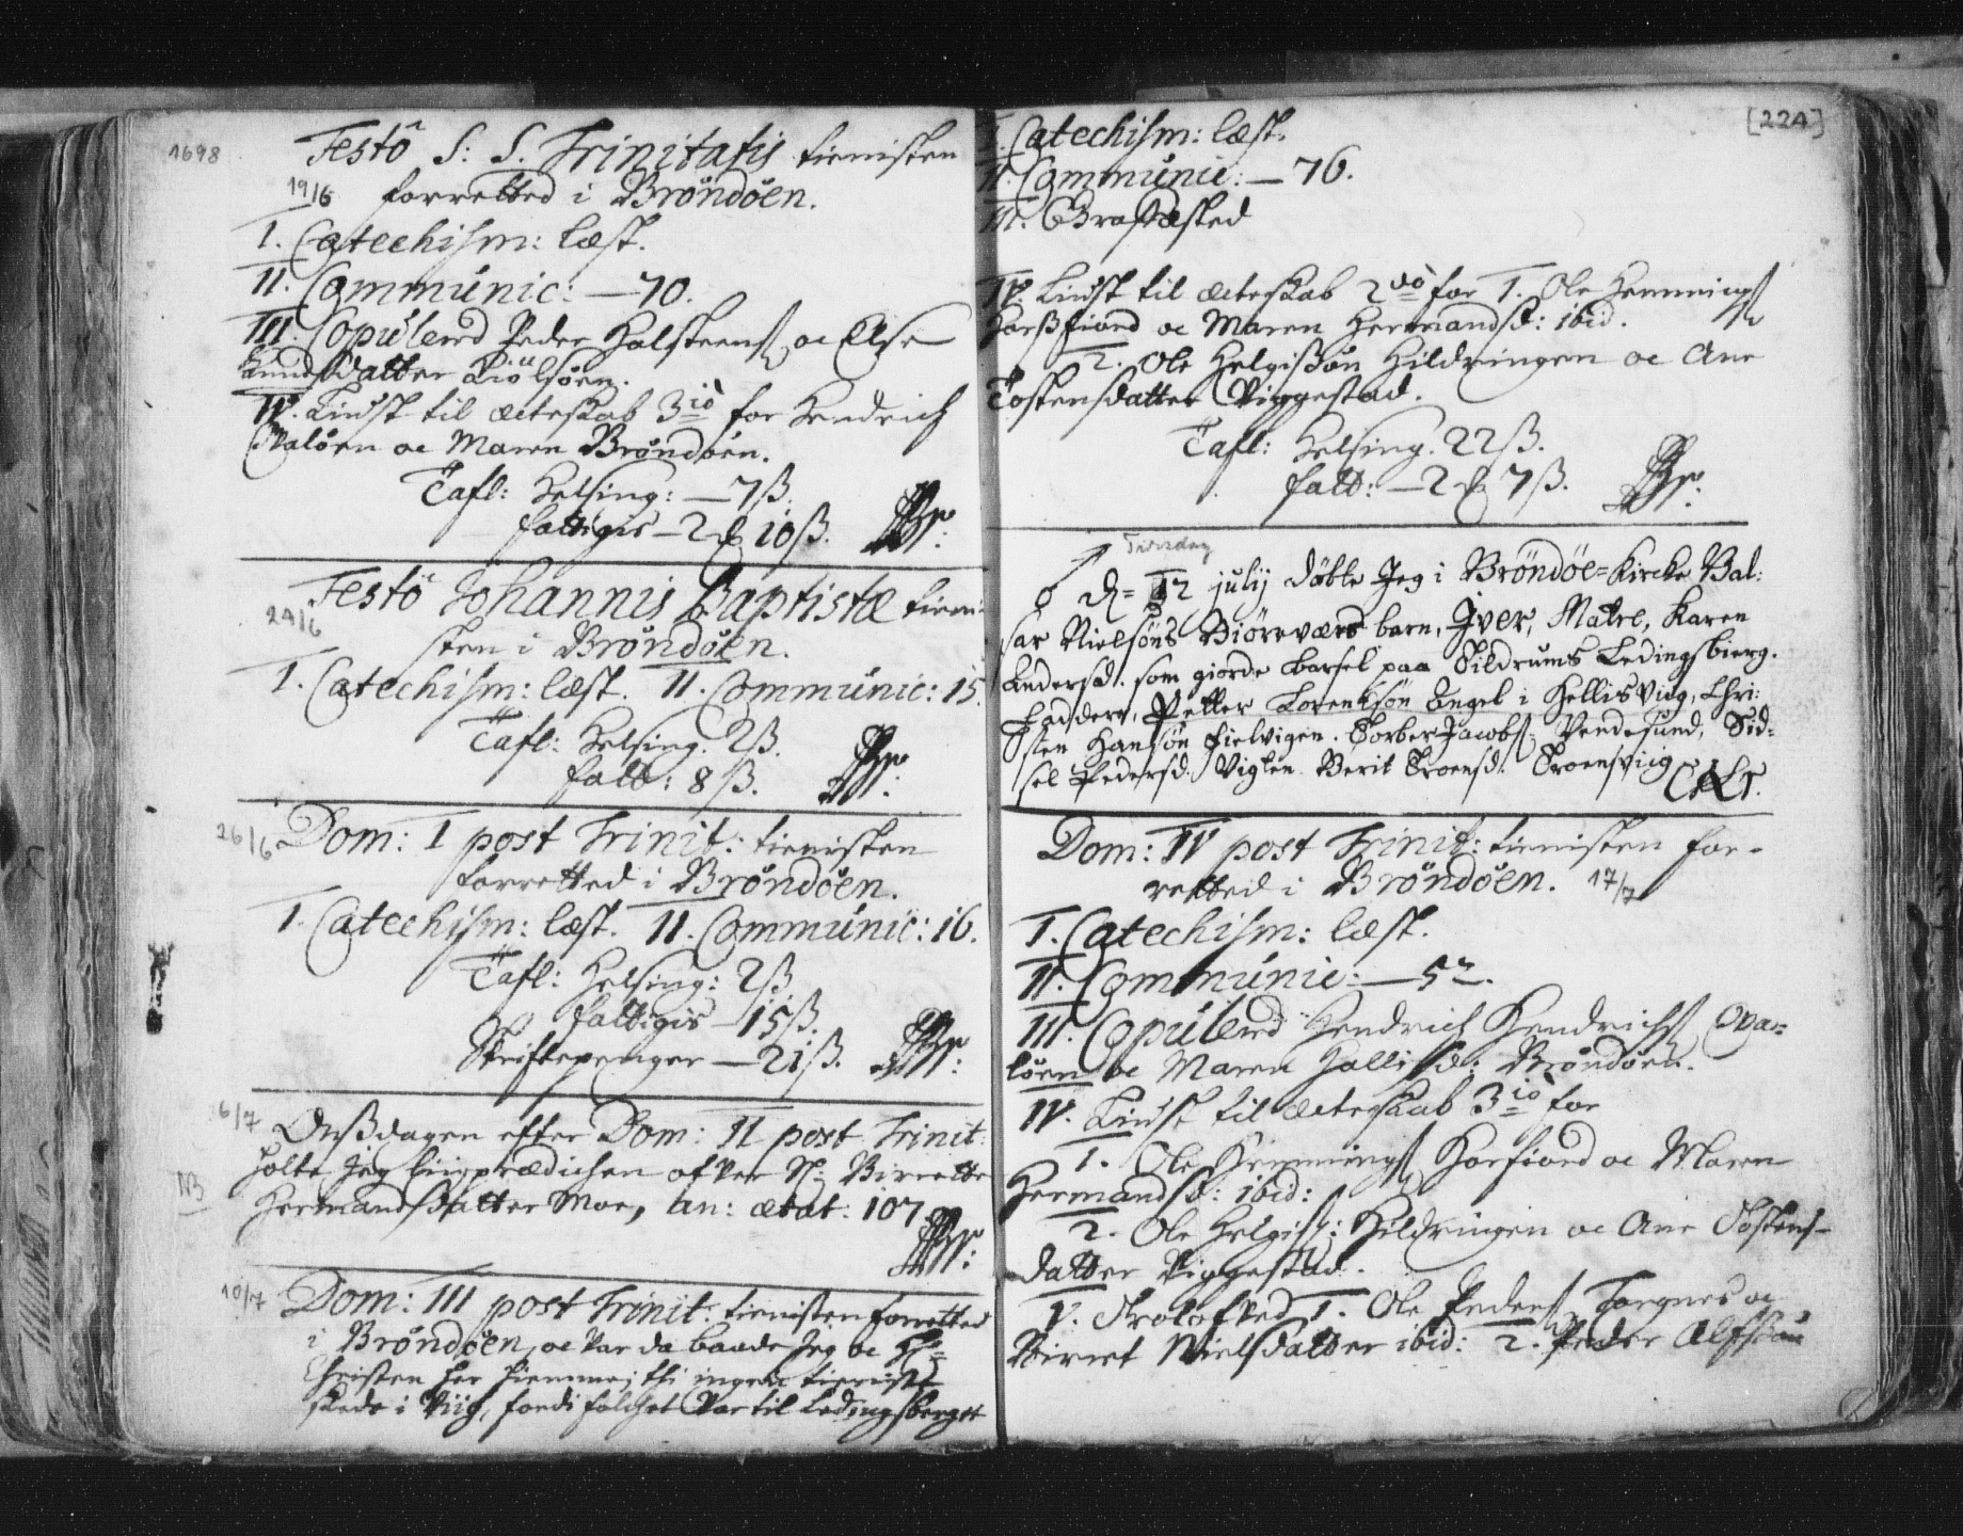 1698
Festô S: S. Trinitatis tienisten
19/6 forretted i Brøndøen.
I. Catechism: læst.
II. Communic: — 70.
III. Copulered Peder Halsteens. oc Else
Knudsdatter Tiølsøen.
IV. Liust til ächteskab 3io for Hendrich
Qvaløen oc Maren Brøndøen.
Tafl: Helsing: — 7 ß.
fattigis — 2 10 ß.
Festô Johannis Baptistæ tieni-
24/6
sten i Brøndøen.
I. Catechism: læst. II. Communic: 15.
Tafl: Helsing. 2 ß.
fatt: 8 ß.
26/6 Dom: I post Trinit: tienisten
forretted i Brøndøen.
I. Catechism: læst. II. Communic: 16.
Tafl: Helsing: 2 ß
fattigis — 15 ß.
Skriftepenger — 21 ß.
6/7 Onßdagen efter Dom: II post Trinit:
holte Jeg liigprædichen ofver Sl: Birrette
NB
Hermandsdatter Moe, an: ætat: 107.
10/7 Dom: III post Trinit: tienisten forretted
i Brøndøen, oc var da baade Jeg oc Hr
Christen her hiemme, thi ingen tieniste
skede i Viig, fordi folchet var til Ledingsberget
[224]
I. Catechism: læst.
II. Communic: — 76.
III. Græsfæsted
IV. Liust til ächteskab 2do for 1. Ole Hemmings
Horsfiord oc Maren Hermandsd: ibid.
2. Ole Helgissøn Hildringen oc Ane
Tostensdatter Viggestad.
Tafl: Helsing. 22 ß.
fatt: — 2 7 ß.
Tirsdag
♂ D= 12 julij døbte Jeg i Brøndøe=Kircke Bal:
sar Nielsøns Biørnværs barn, Iver, Matre, Karen
Andersd. som giorde barsel paa Sildrums Ledingsbierg.
Faddere, Petter Lorentsøn Angel i Hellisviig, Chri:
sten Hansøn Fielvigen. Torber Jacobs: Vendesund, Sid=
sel Pedersd: Viglen Berit Troensd: Troensviig
Dom: IV post Trinit: tienisten for-
retted i Brøndøen. 17/7
I. Catechism: læst.
II. Communic: — 52.
III. Copulered Hendrich Hendrichs. Qva=
løen oc Maren Hallisd: Brøndøen.
IV. Liust til ächteskab 3io for
1. Ole Hemmings Horsfiord oc Maren
Hermandsd: ibid:
2. Ole Helgiss: Hildringen oc Ane Tostens-
datter Viggestad.
V. Trolofved 1. Ole Peders. Torgnes oc
Birret Nielsdatter ibid: 2. Peder Alfsøn